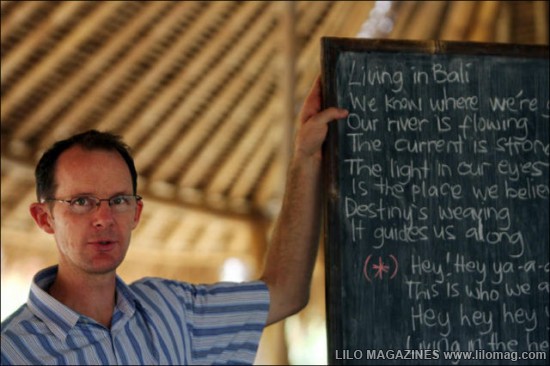 Living in Bali
We know where we're
Our river is flowing
The current is strong
The light in our eyes
Is the place we believe
Destiny's weaving
It guides us along
(*) Hey! Hey ya-a-a
This is who we a
Hey hey hey
Living in the he
LILO MAGAZINES www.lilomag.com